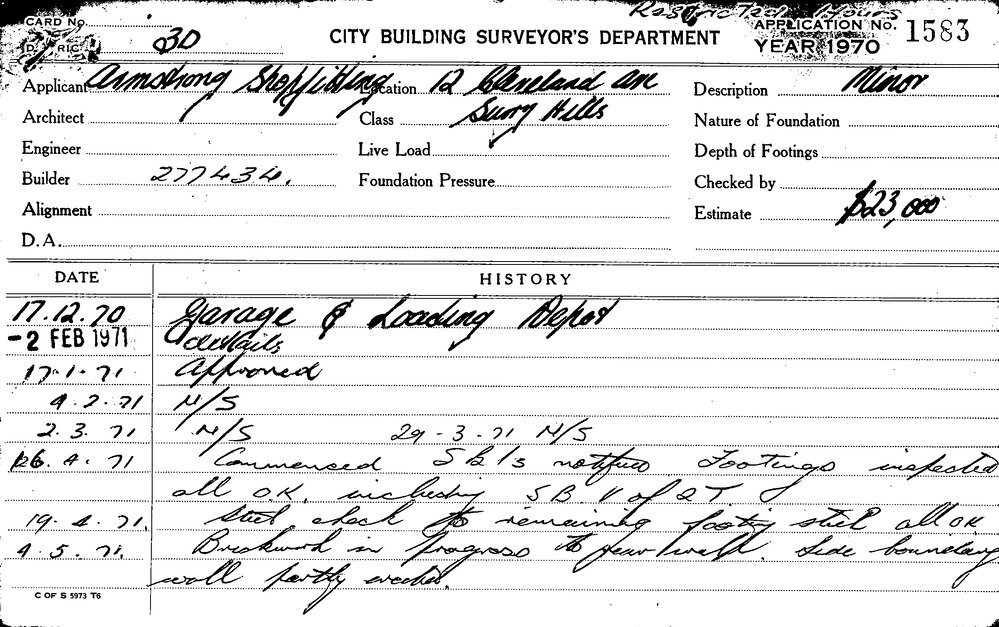 Restricted Hours
CARD No.
DISTRICT 3D
CITY BUILDING SURVEYOR'S DEPARTMENT
APPLICATION No. 1583
YEAR 1970
Applicant Armstrong Shopfitting Location 12 Cleveland Ave Description Minor
Architect Class Surry Hills Nature of Foundation
Engineer Live Load Depth of Footings
Builder 277434. Foundation Pressure Checked by
Alignment Estimate $23,000
D.A.
DATE HISTORY
17.12.70 Garage & Loading Depot
-2 FEB 1971 details
17.1.71 Approved
9.2.71 N/S
2.3.71 N/S 29-3-71 N/S
26.4.71 Commenced SB1's notified Footings inspected
all O.K. including S.B. V of QT
19.4.71. Steel check to remaining footing steel all OK
4.5.71. Brickwork in progress to rear wall. Side boundary
wall partly erected.
C OF S 5973 T6